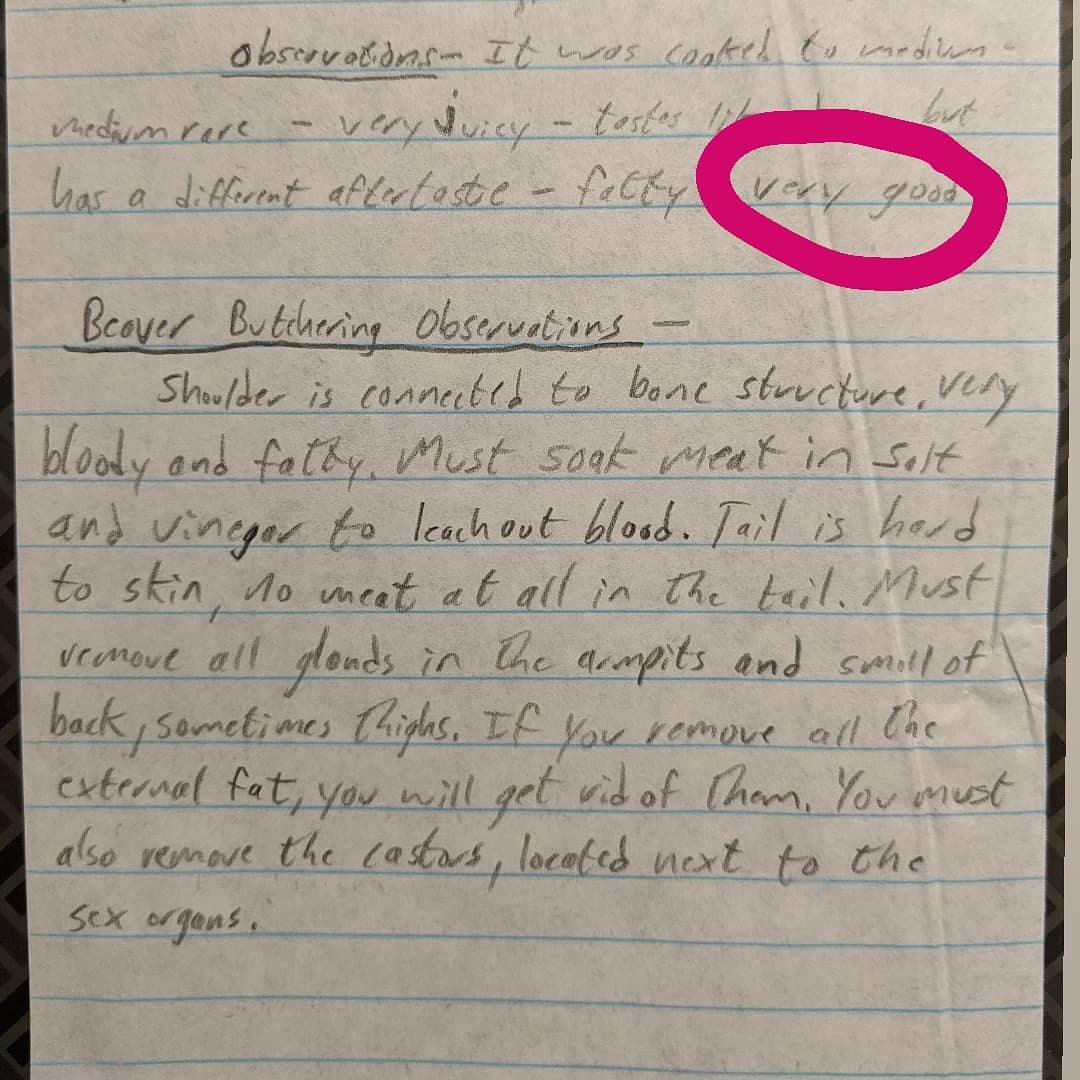 Observations - It was cooked to medium -
medium rare - very juicy - tastes but
has a different aftertaste - fatty very good
Beaver Butchering Observations -
Shoulder is connected to bone structure. Very
bloody and fatty. Must soak meat in salt
and vinegar to leach out blood. Tail is hard
to skin, no meat at all in the tail. Must
remove all glands in the armpits and small of
back, sometimes thighs. If you remove all the
external fat, you will get rid of them. You must
also remove the castors, located next to the
sex organs.